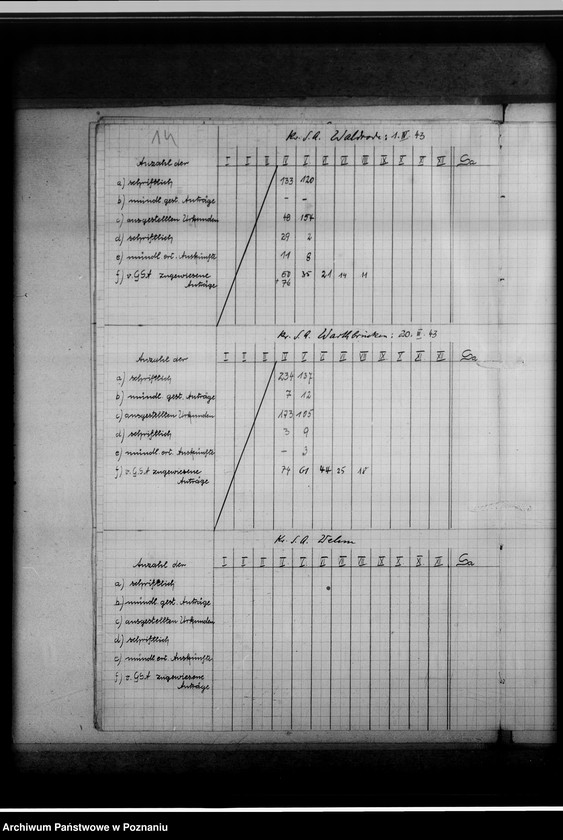 14
Kr. S. A. Waldrode: 1. IV. 43
Anzahl der I I II IV V VI VII VIII IX X XI XII Sa
a) schriftlich 133 120
b) mündl. gest. Anträge - -
c) ausgestellten Urkunden 48 154
d) schriftlich 29 2
e) mündl. ert. Auskünfte 11 8
f) v. GSA zugewiesene 60 35 21 14 11
Anträge + 76
Kr. S. A. Warthbrücken: 20. II. 43
Anzahl der I II III IV V VI VII VIII IX X XI XII Sa
a) schriftlich 234 137
b) mündl. gest. Anträge 7 12
c) ausgestellten Urkunden 173 105
d) schriftlich 3 9
e) mündl. ert. Auskünfte - 3
f) v. GSA zugewiesene 74 61 44 25 18
Anträge
Kr. S. A. Welun
Anzahl der I II III IV V VI VII VIII IX X XI XII Sa
a) schriftlich
b) mündl. gest. Anträge
c) ausgestellten Urkunden
d) schriftlich
e) mündl. ert. Auskünfte
f) v. GSA zugewiesene
Anträge
Archiwum Państwowe w Poznaniu